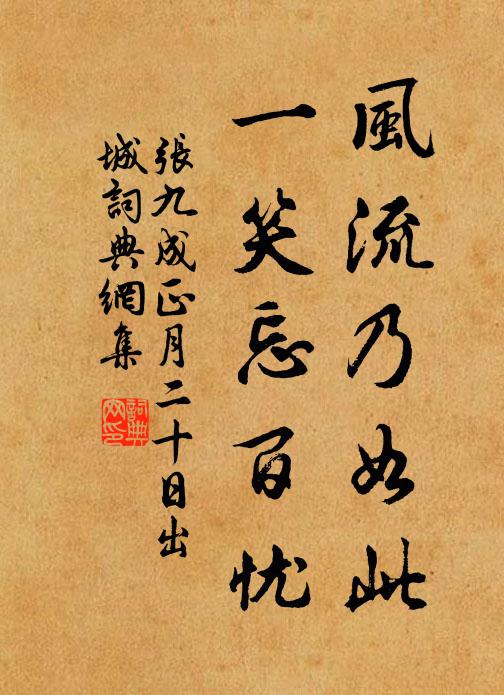 風流乃如此
一笑忘百忧
張九成正月二十日出
城詞典網集
詞典
网印